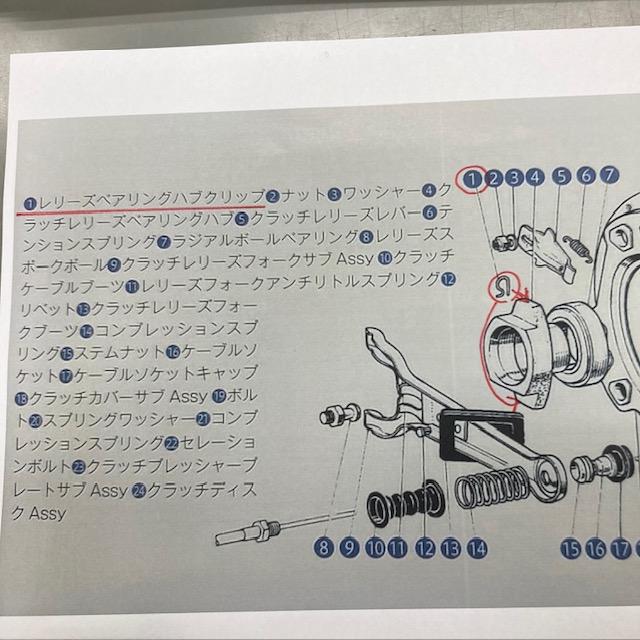 ❶レリーズベアリングハブクリップ❷ナット❸ワッシャー❹ク
ラッチレリーズベアリングハブ❺クラッチレリーズレバー❻テ
ンションスプリング❼ラジアルボールベアリング❽レリーズス
ポークボール❾クラッチレリーズフォークサブAssy❿クラッチ
ケーブルブーツ⓫レリーズフォークアンチリトルスプリング⓬
リベット⓭クラッチレリーズフォー
クブーツ⓮コンプレッションスプ
リング⓯ステムナット⓰ケーブルソ
ケット⓱ケーブルソケットキャップ
⓲クラッチカバーサブAssy⓳ボル
ト⓴スプリングワッシャー㉑コンプ
レッションスプリング㉒セレーショ
ンボルト㉓クラッチプレッシャープ
レートサブAssy㉔クラッチディス
クAssy
❶❷❸❹❺❻❼
❽❾❿⓫⓬⓭⓮
⓯⓰⓱